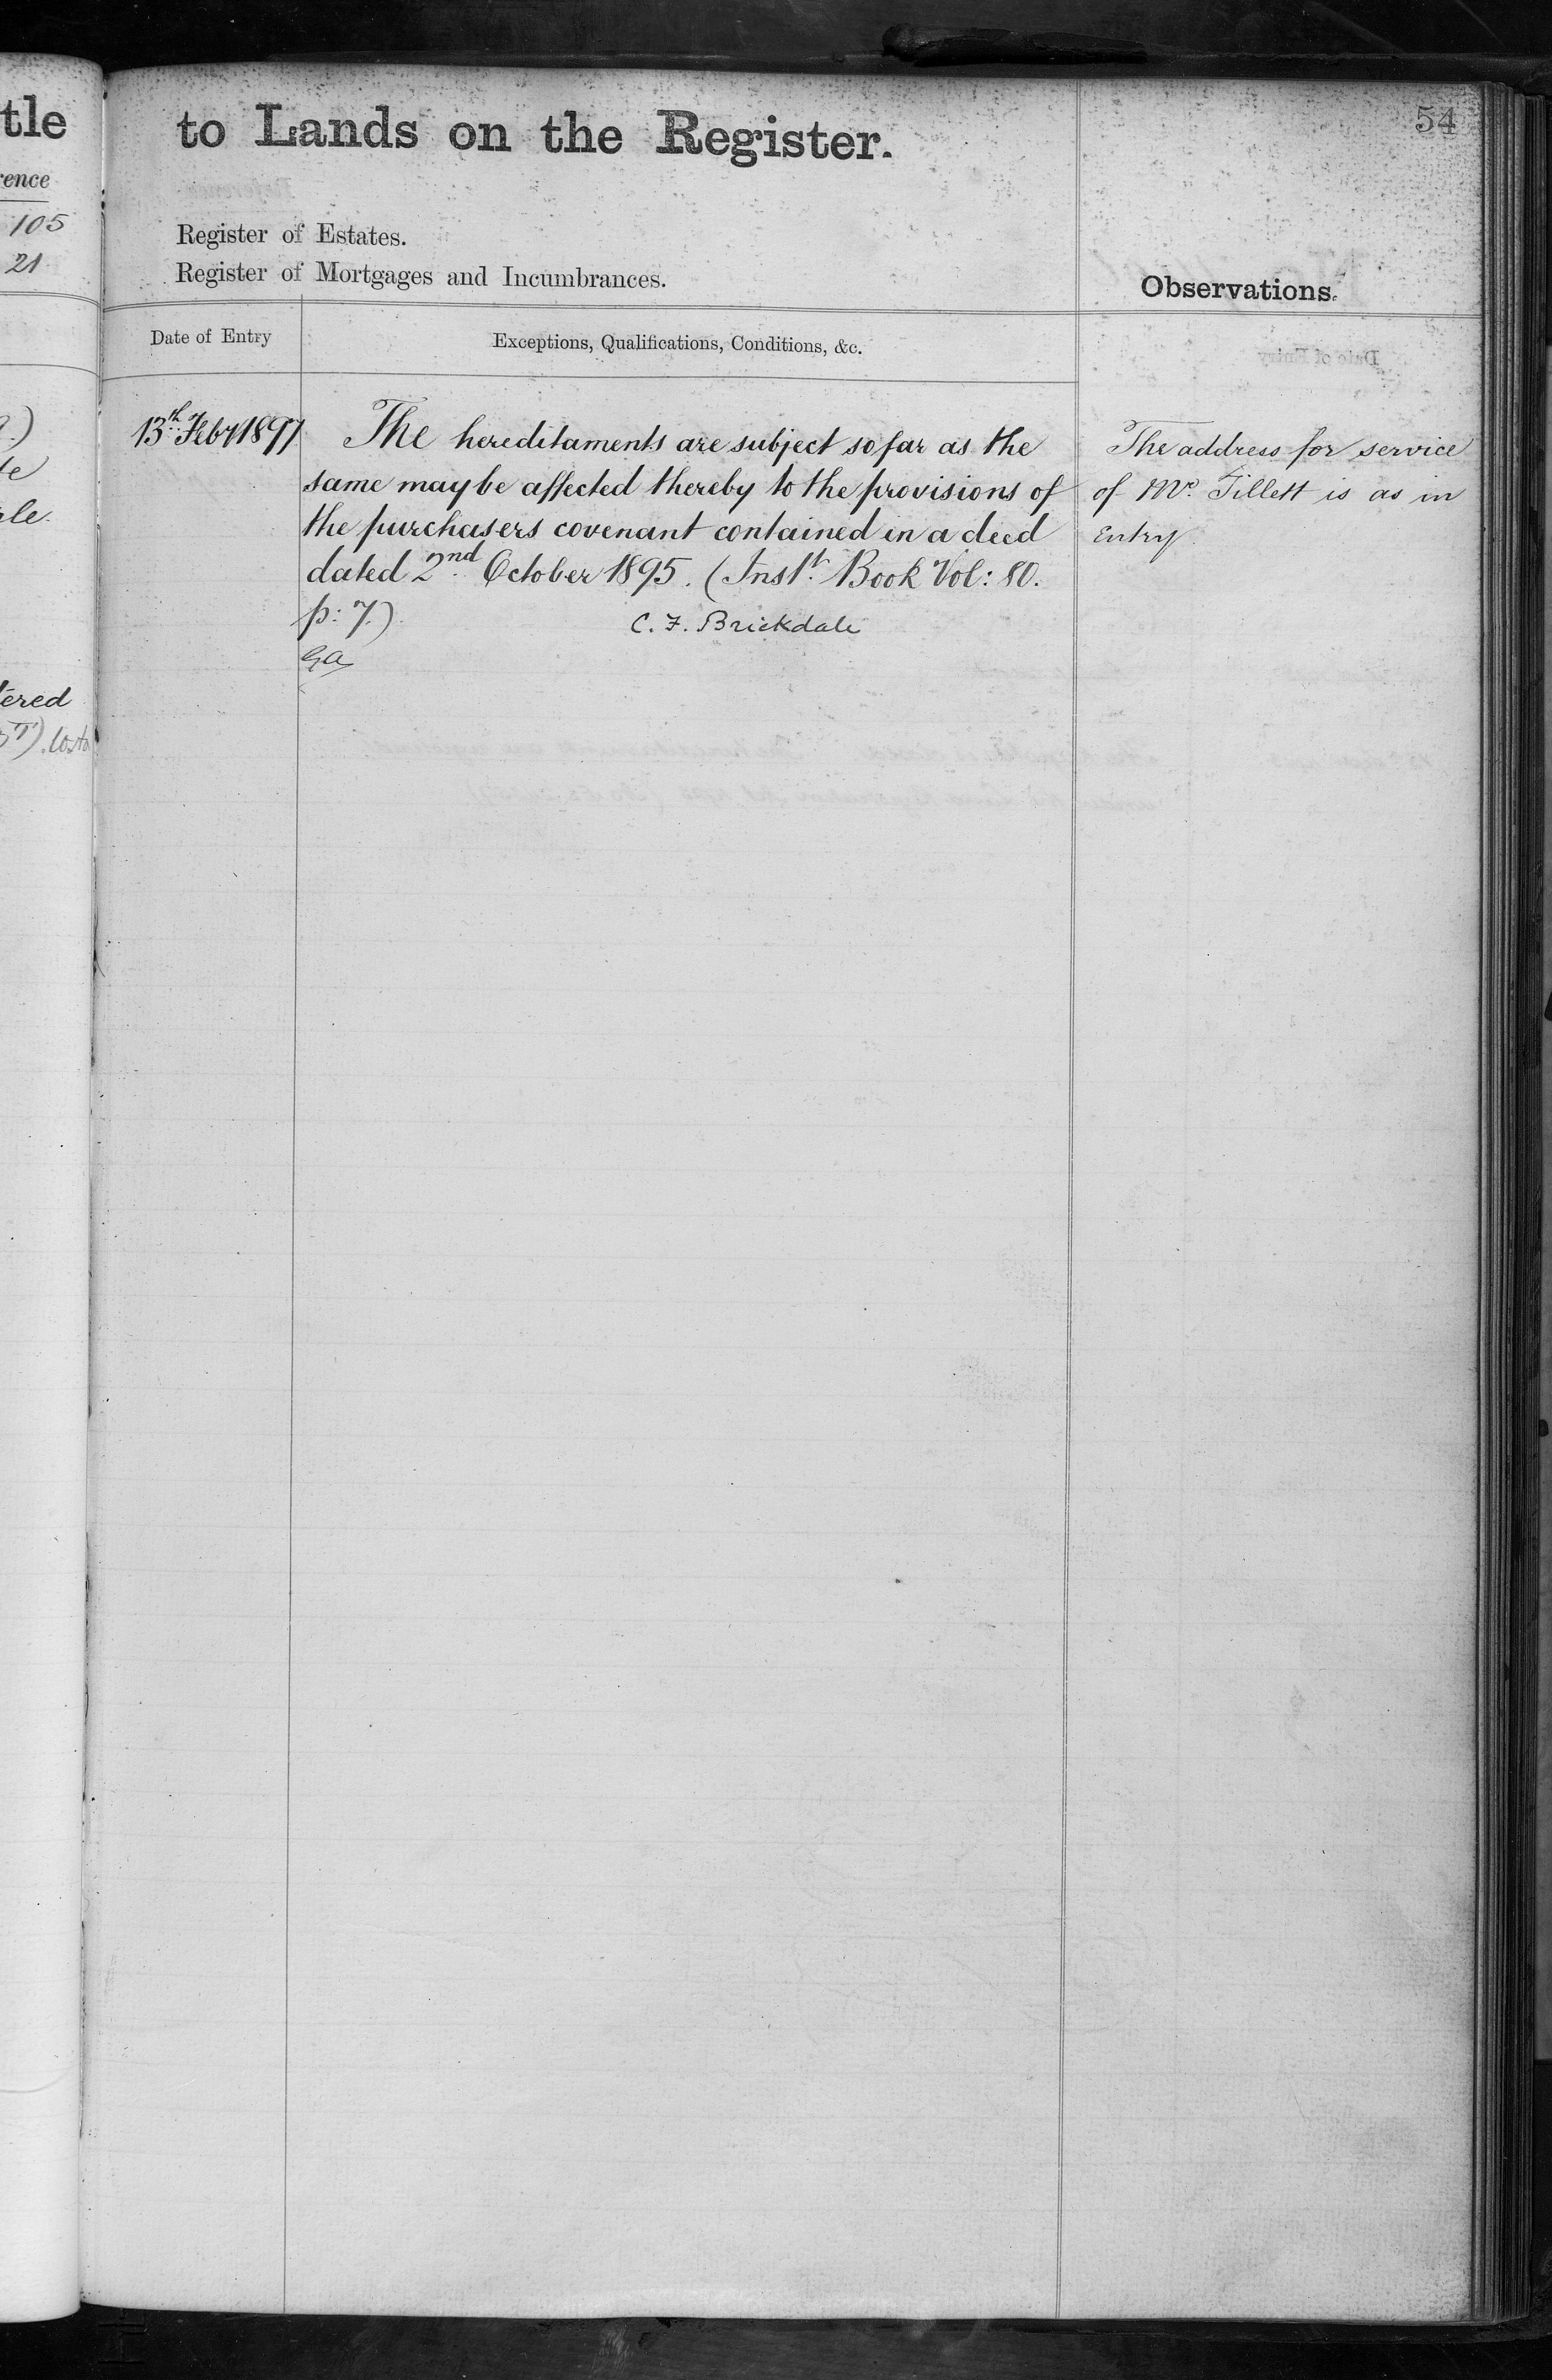 54
tle
to Lands on the Register.
rence
105
21
Register of Estates.
Register of Mortgages and Incumbrances.
Observations.
Date of Entry
Exceptions, Qualifications, Conditions, &c.
13th Feby 1897
The hereditaments are subject so far as the
same may be affected thereby to the provisions of
the purchasers covenant contained in a deed
dated 2nd October 1895. (Inst. Book Vol: 80.
p: 7.)
C. F. Brickdale
GA
The address for service
of Mr. Tillett is as in
Entry.
tered